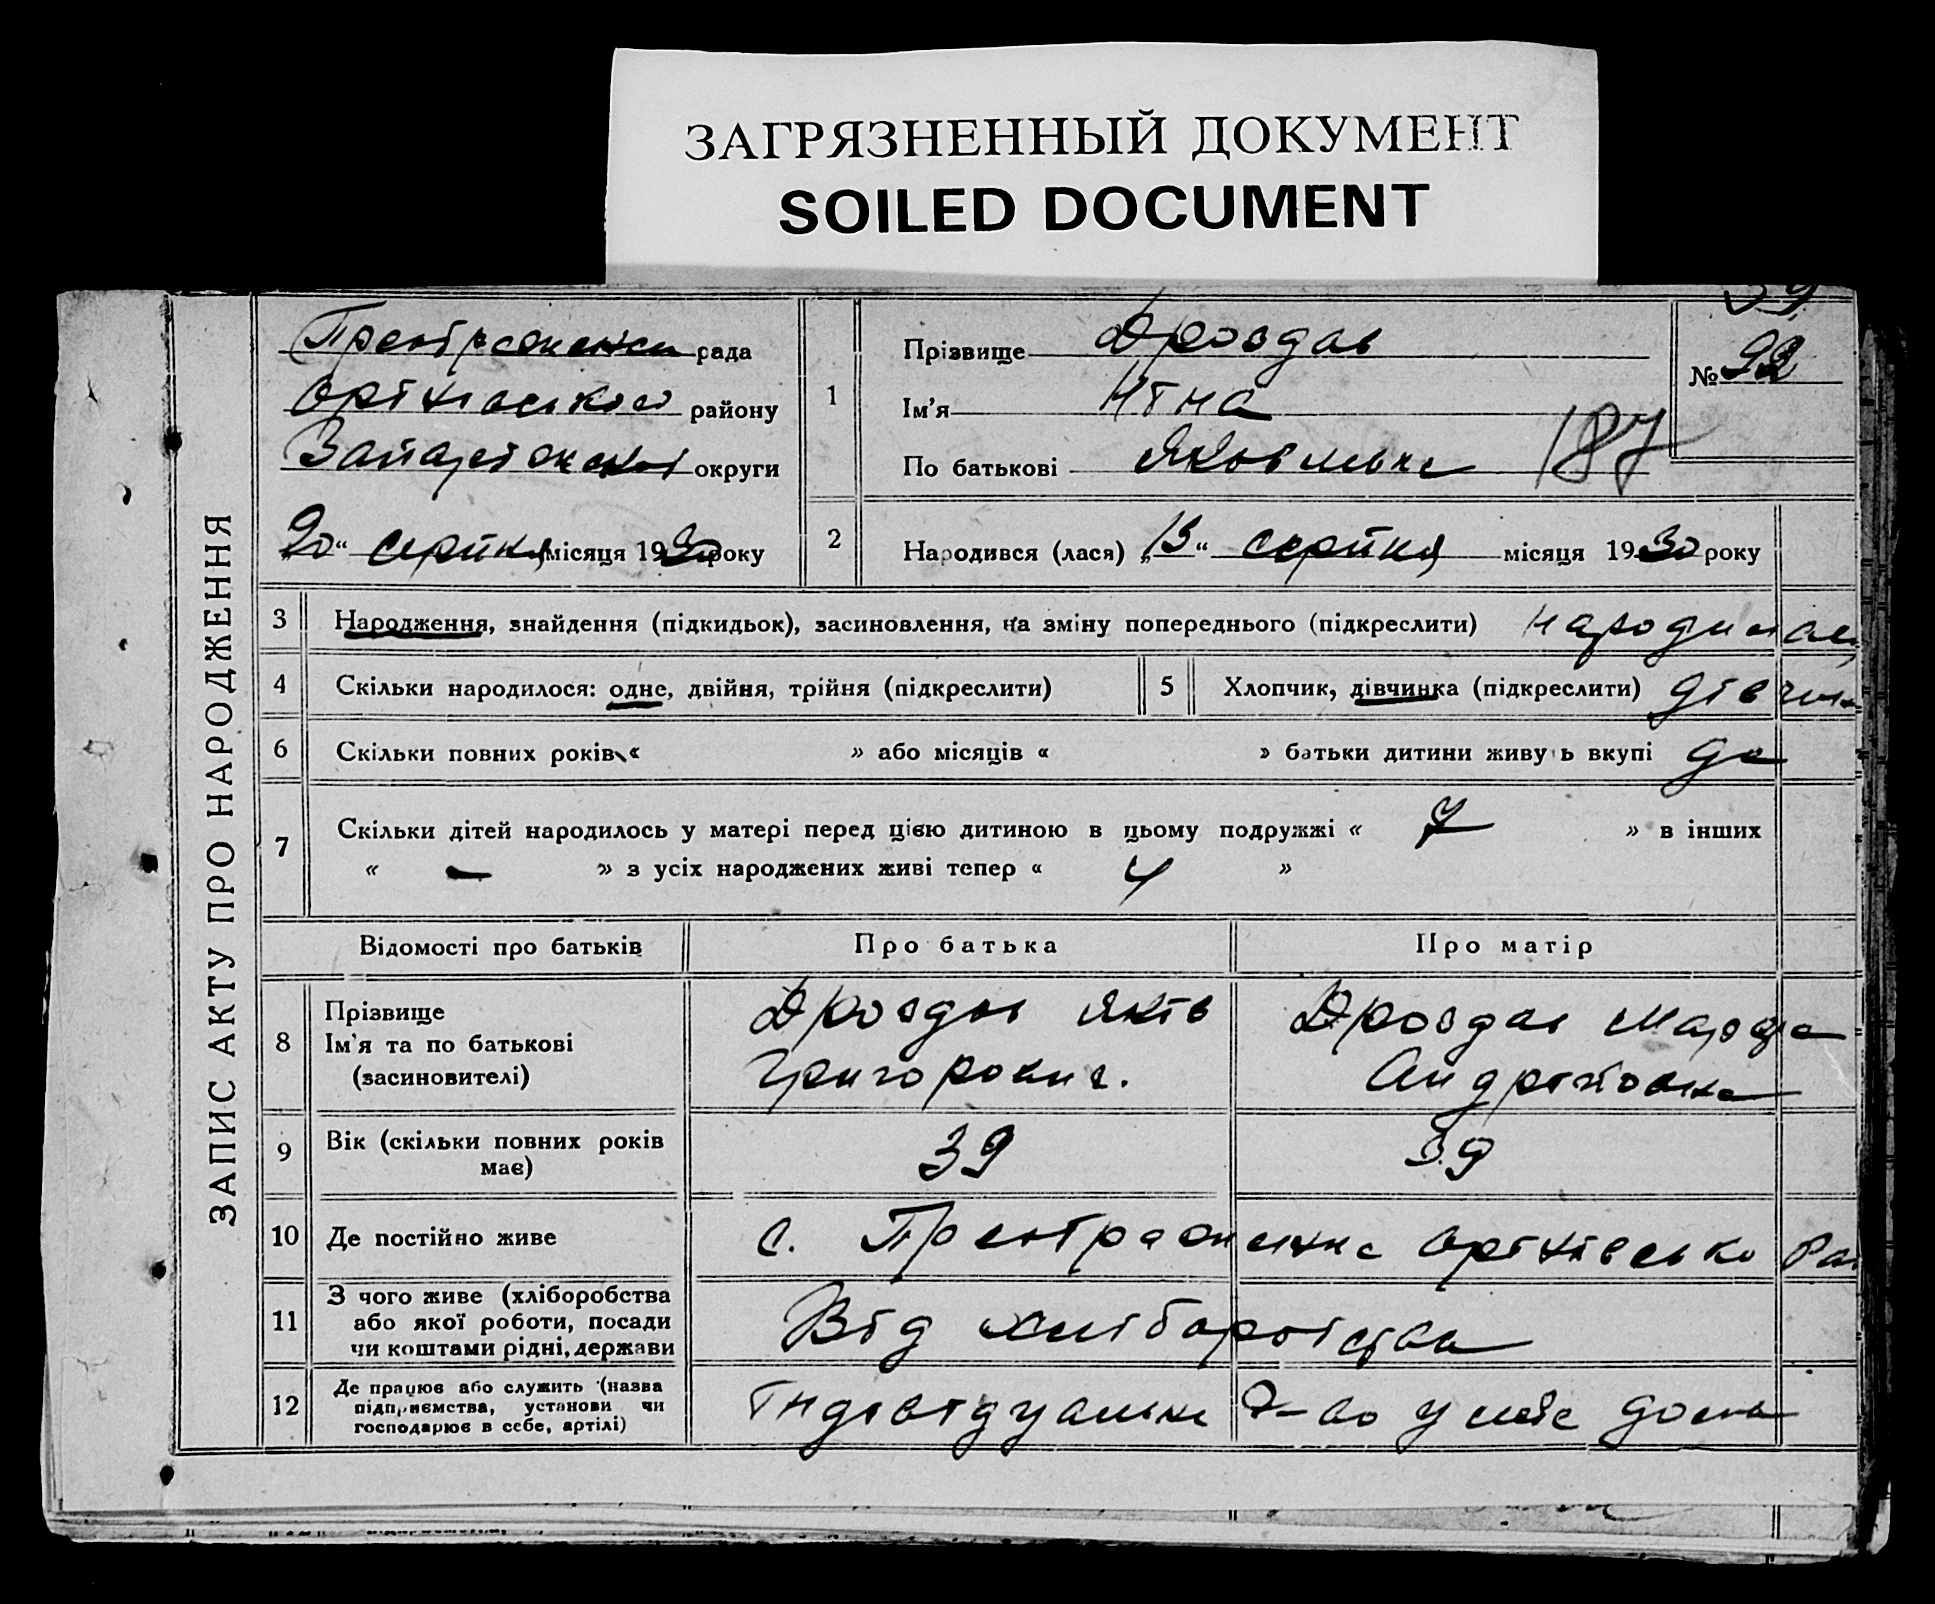 ЗАГРЯЗНЕННЫЙ ДОКУМЕНТ
SOILED DOCUMENT
ЗАПИС АКТУ ПРО НАРОДЖЕННЯ
рада
району
округи
20 " серпня місяця 1930 року
1
Прізвище Дроздов
Ім'я Ніна
По батькові Яковлевна
187
№ 92
2
Народився (лася) „13" серпня місяця 1930 року
3 Народження, знайдення (підкидьок), засиновлення, на зміну попереднього (підкреслити)
4 Скільки народилося: одне, двійня, трійня (підкреслити)
5 Хлопчик, дівчинка (підкреслити) дівчин
6 Скільки повних років « » або місяців « » батьки дитини живуть вкупі да
7 Скільки дітей народилось у матері перед цією дитиною в цьому подружжі « 7 » в інших
« — » з усіх народжених живі тепер « 4 »
Відомості про батьків Про батька Про матір
8 Прізвище
Ім'я та по батькові
(засиновителі)
Дроздов Яків
Григорович.
Дроздов
9 Вік (скільки повних років
має)
39
39
10 Де постійно живе
с. Преображенка Оріхівсько Рай
11 З чого живе (хліборобства
або якої роботи, посади
чи коштами рідні, держави
Від хліборобства
12 Де працює або служить (назва
підприємства, установи чи
господарює в себе, артілі)
Індивідуальне